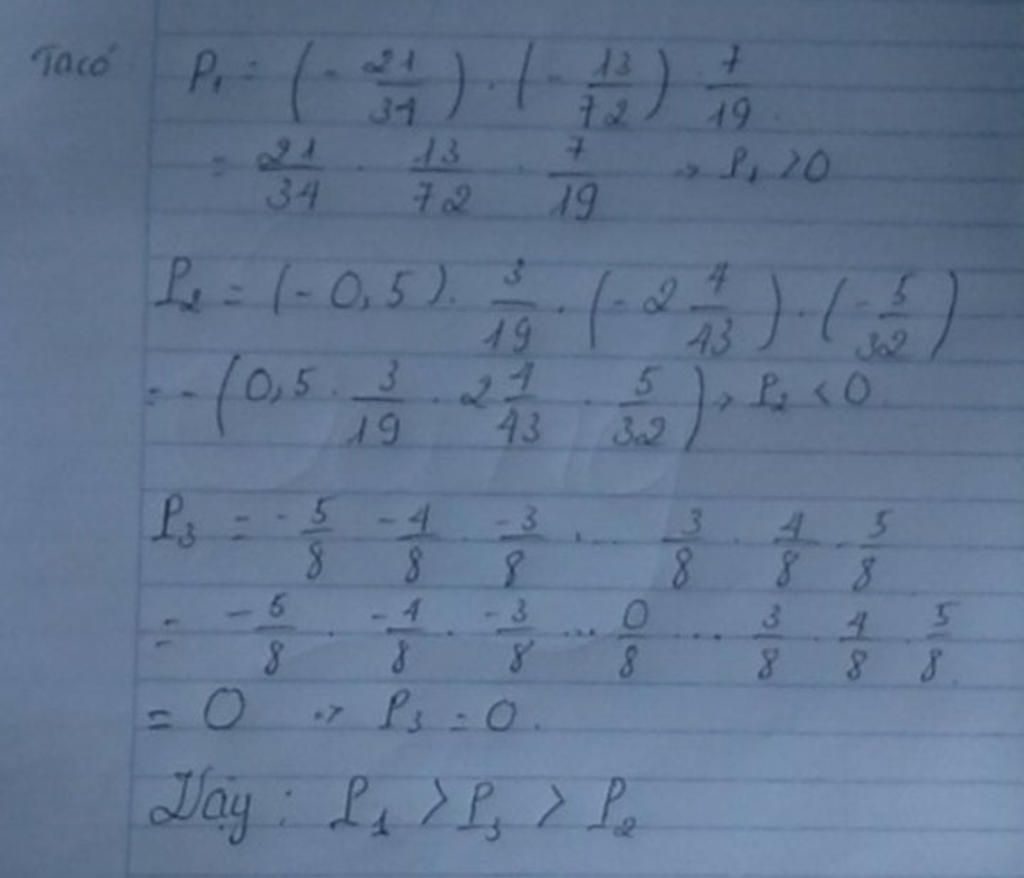 Ta có P₁ = (- 21/34) . (- 13/72) . 7/19
= 21/34 . 13/72 . 7/19 → P₁ > 0
P₂ = (- 0,5) . 3/19 . (- 2 4/43) . (- 5/32)
= - (0,5 . 3/19 . 2 4/43 . 5/32) → P₂ < 0
P₃ = - 5/8 . -4/8 . -3/8 . ... 3/8 . 4/8 . 5/8
= -5/8 . -4/8 . -3/8 ... 0/8 ... 3/8 . 4/8 . 5/8
= 0 → P₃ = 0.
Vậy : P₁ > P₃ > P₂